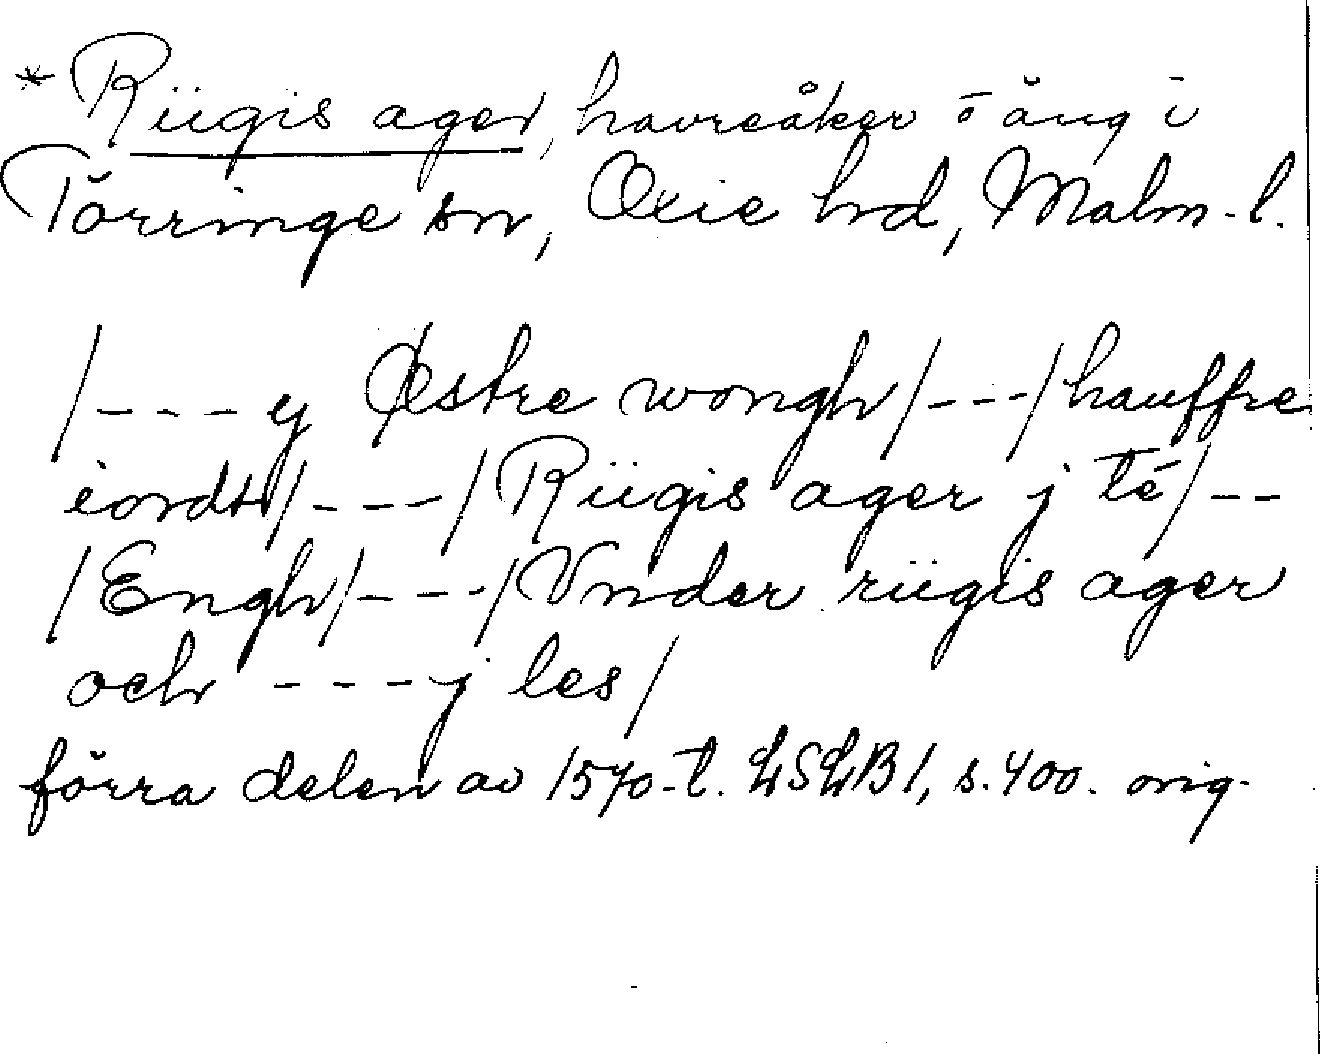 * Riigis ager, havreåker o äng i
Törringe sn, Oxie hd, Malm.l.
/---y Østre wongh/---/hauffre
iordt/---/Riigis ager j té/--
/Engh/---/Vnder riigis ager
och ---j les/
förra delen av 1570-t. LSLB1, s.400. orig.